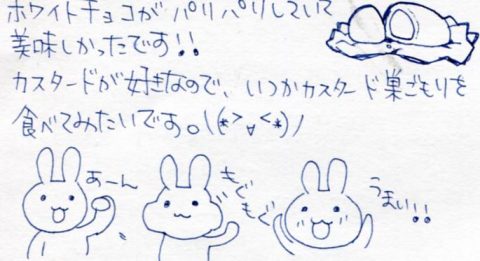 ホワイトチョコがパリパリしていて
美味しかったです!!
カスタードが好きなので、いつかカスタード巣ごもりを
食べてみたいです。\(*>∀<*)ﾉ
あーん
もぐもぐ
うまい!!